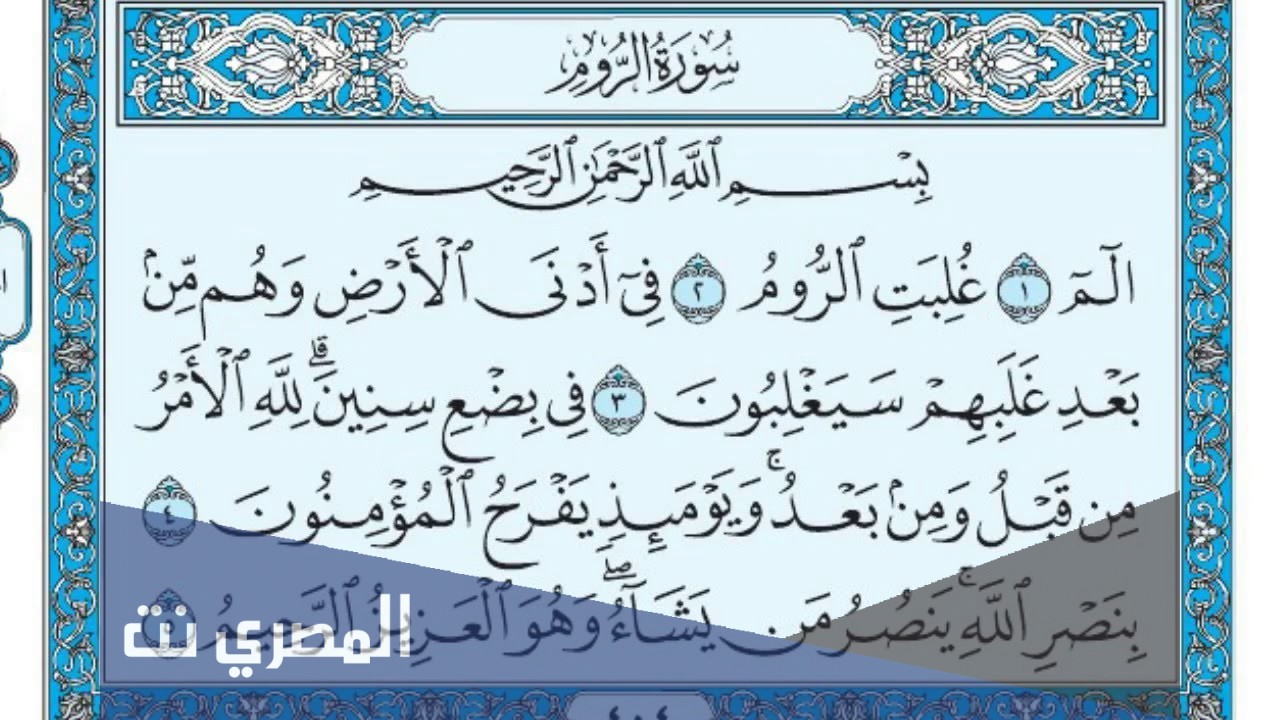 سُورَةُ الرُّومِ
بِسْمِ ٱللَّهِ ٱلرَّحْمَٰنِ ٱلرَّحِيمِ
الٓمٓ ١ غُلِبَتِ ٱلرُّومُ ٢ فِىٓ أَدْنَى ٱلْأَرْضِ وَهُم مِّنۢ
بَعْدِ غَلَبِهِمْ سَيَغْلِبُونَ ٣ فِى بِضْعِ سِنِينَ ۗ لِلَّهِ ٱلْأَمْرُ
مِن قَبْلُ وَمِنۢ بَعْدُ ۚ وَيَوْمَئِذٍ يَفْرَحُ ٱلْمُؤْمِنُونَ ٤
بِنَصْرِ ٱللَّهِ ۚ يَنصُرُ مَن يَشَآءُ ۖ وَهُوَ ٱلْعَزِيزُ ٱلرَّحِيمُ ٥
المصري نت
٤٠٤